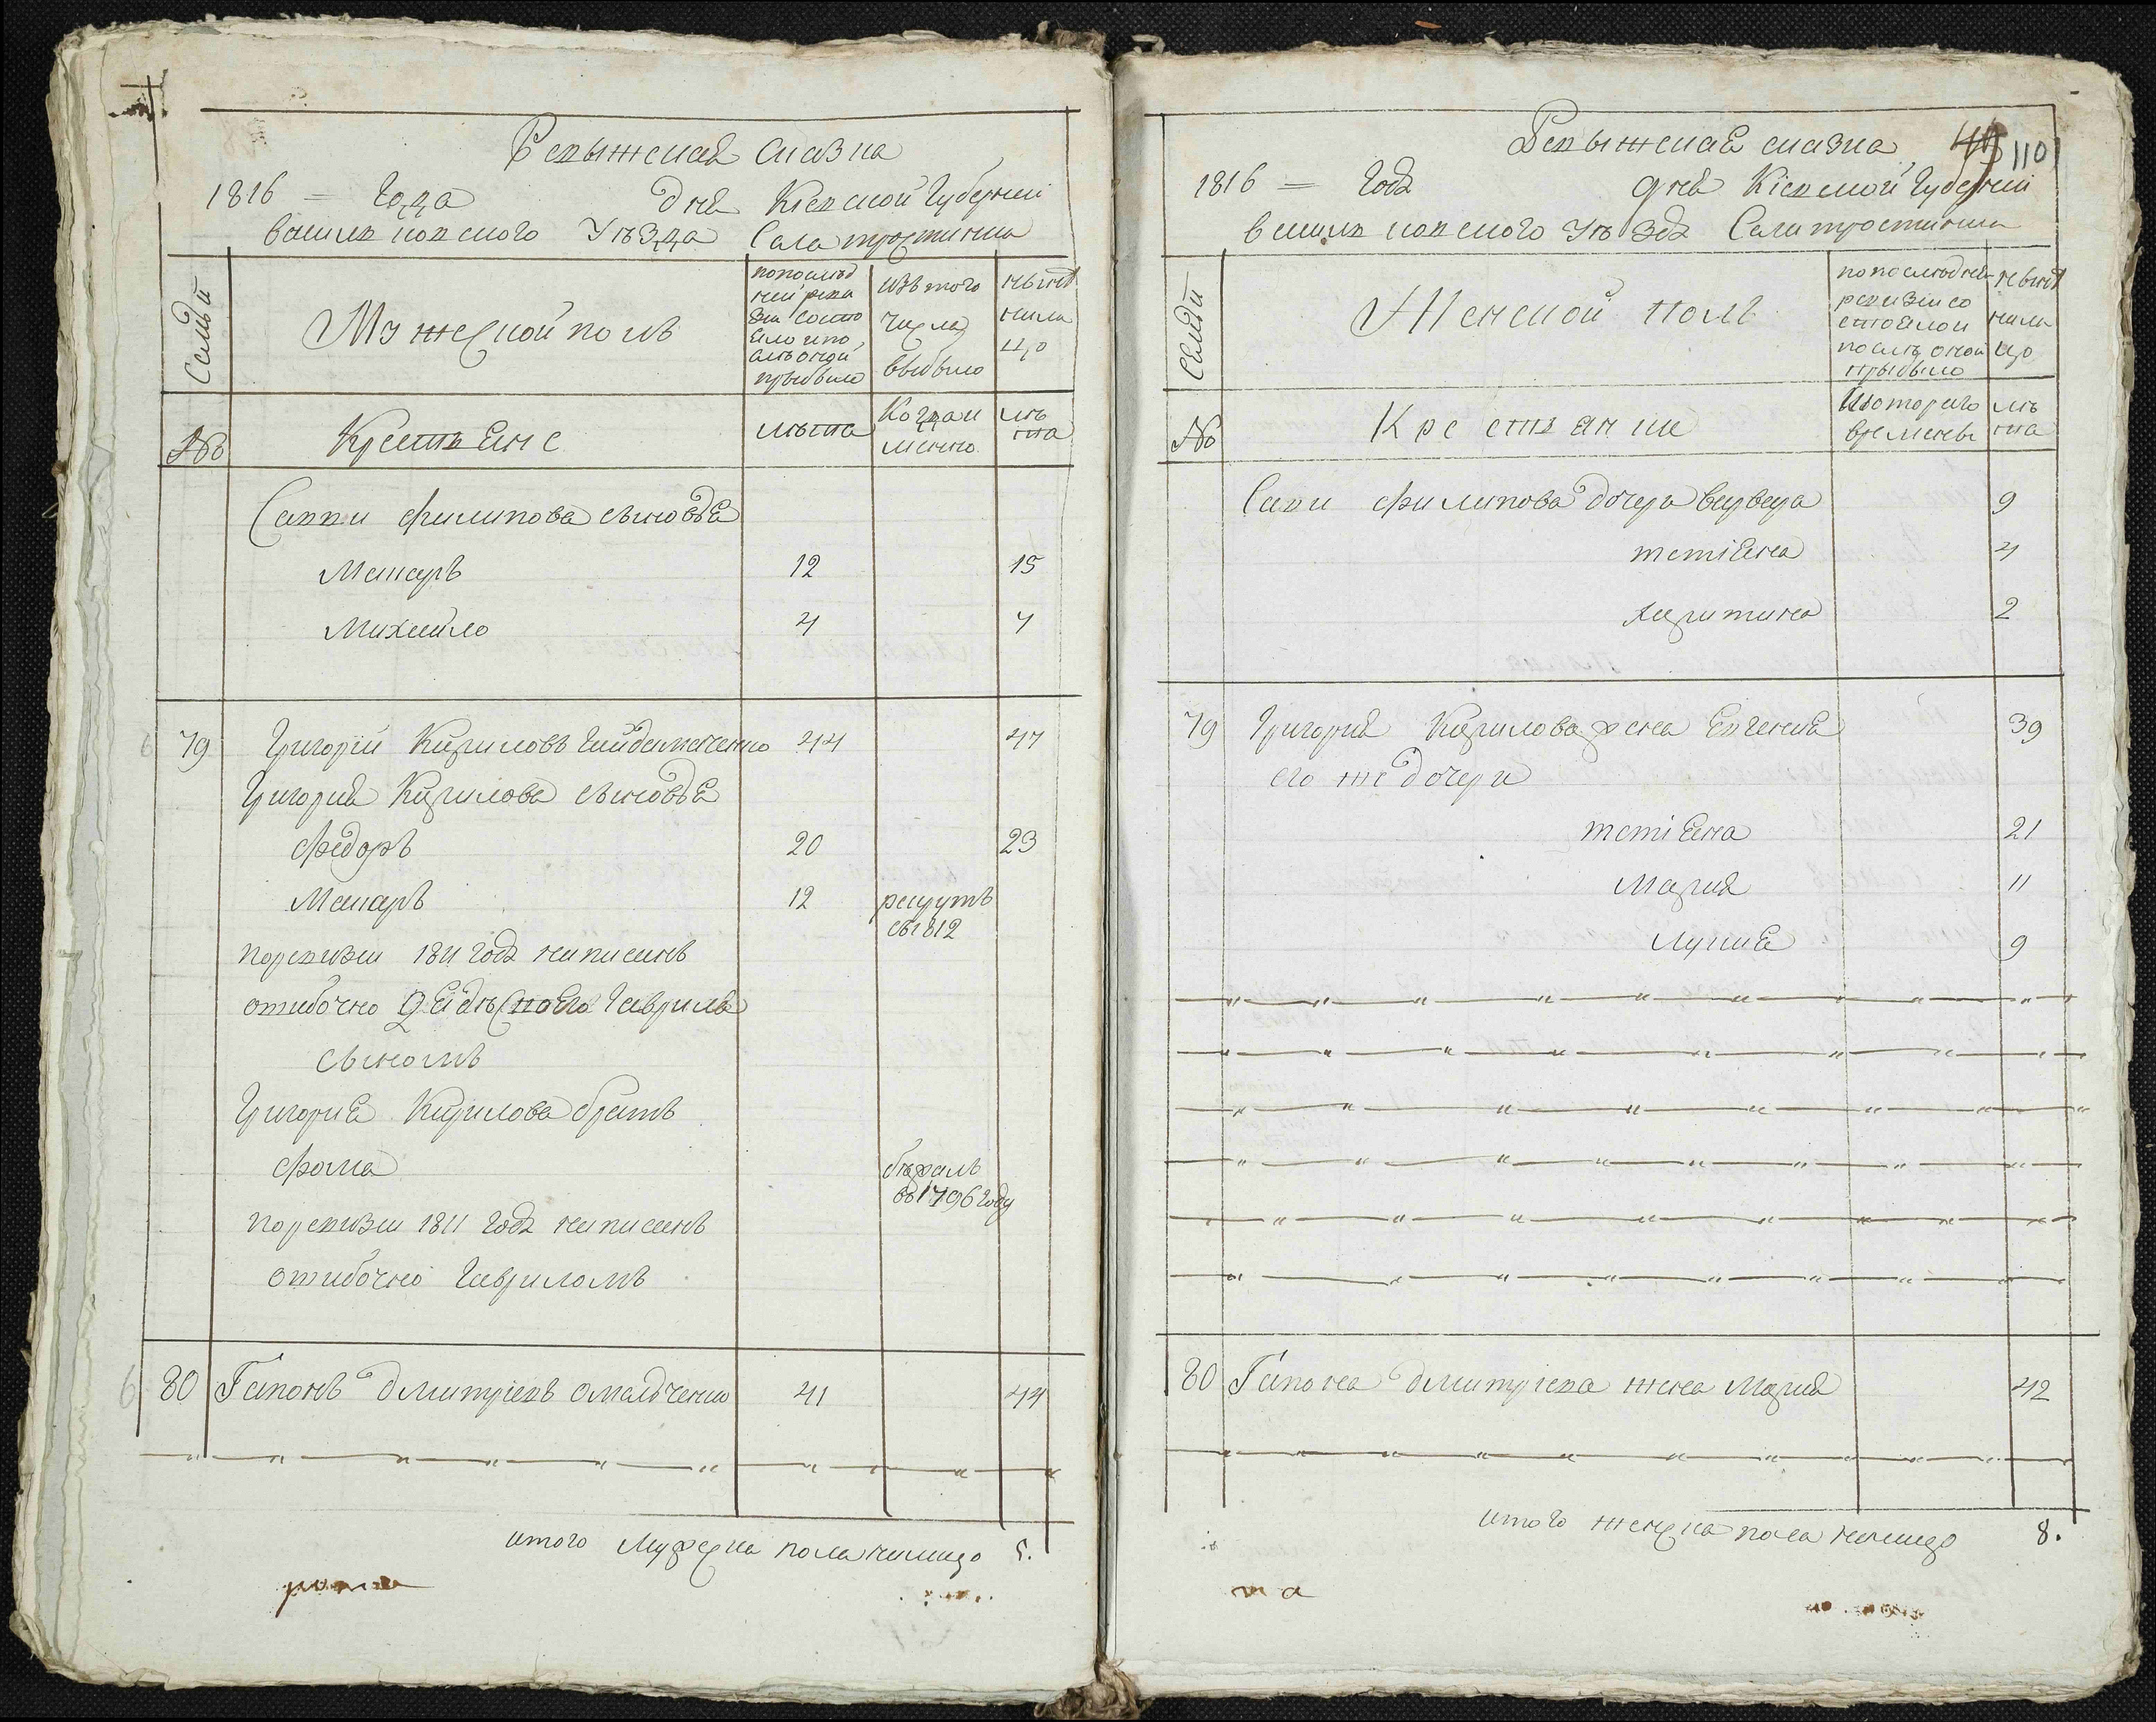 Ревыжская сказка
1816 = Года дня Кіевской Губерніи
васильковского Уѣзда Села тростинки
Семьи
Мужеской полъ
попослѣд
ней реви
зіи состо
яло ипо
слѣ оной
прыбыло
изъ того
числа
выбыло
нынѣ
нали
цо
№
Крестьяне
лѣта
Когда и
менно
лѣ
та
Савки филипова сыновья
Макаръ 12 15
Михайло 4 7
79 Григорій Кириловъ Гайдамаченко 44 47
Григорія Кирилова сыновья
федоръ 20 23
Макаръ 12 рекрутъ
съ1812
поревизіи 1811 года написанъ
ошибочно Гаврила
сыномъ
Григорія Кирилова братъ
фома бѣжалъ
въ1796 году
поревизіи 1811 года написанъ
ошибочно Гавриломъ
80 Гапонъ дмитріевъ омальченко 41 44
итого мужеска пола налицо 5.
110
Ревыжская сказка
1816 = года дня Кіевской Губерніи
василь ковского Уѣзда Села тростинки
Семьи
Женской полъ
попослѣдней
ревизіи со
стоялои
послѣ оной
прыбыло
нынѣ
нали
цо
№
Крестьянки
Изкоторого
времены
лѣ
та
Савки филипова дочери варвара 9
тетіяна 4
харитина 2
79 Григорія Кирилова жена Евгенія 39
его же дочери
тетіяна 21
Марія 11
лукия 9
80 Гапона дмитріева жена Марія 42
итого женска пола налицо 8.
та